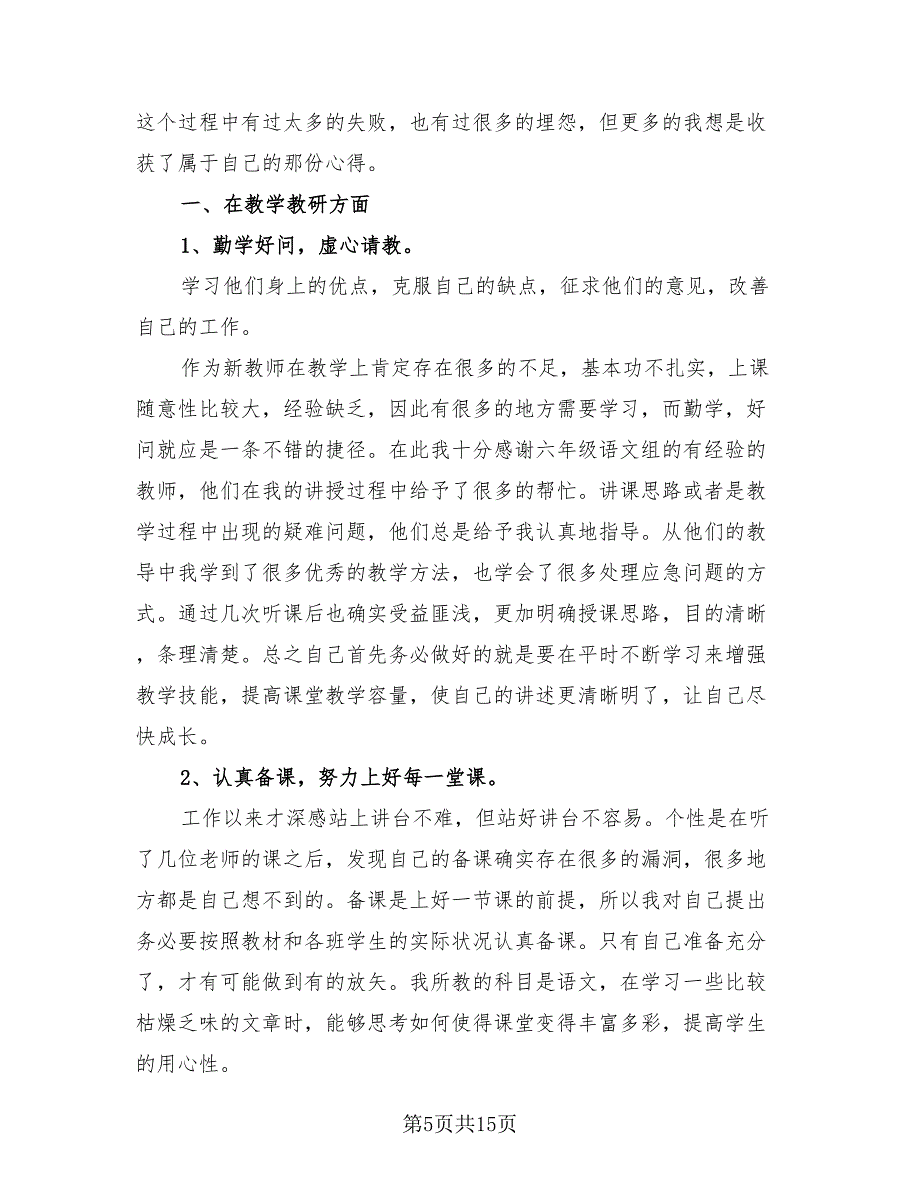 这个过程中有过太多的失败，也有过很多的埋怨，但更多的我想是收
获了属于自己的那份心得。
一、在教学教研方面
1、勤学好问，虚心请教。
学习他们身上的优点，克服自己的缺点，征求他们的意见，改善
自己的工作。
作为新教师在教学上肯定存在很多的不足，基本功不扎实，上课
随意性比较大，经验缺乏，因此有很多的地方需要学习，而勤学，好
问就应是一条不错的捷径。在此我十分感谢六年级语文组的有经验的
教师，他们在我的讲授过程中给予了很多的帮忙。讲课思路或者是教
学过程中出现的疑难问题，他们总是给予我认真地指导。从他们的教
导中我学到了很多优秀的教学方法，也学会了很多处理应急问题的方
式。通过几次听课后也确实受益匪浅，更加明确授课思路，目的清晰
，条理清楚。总之自己首先务必做好的就是要在平时不断学习来增强
教学技能，提高课堂教学容量，使自己的讲述更清晰明了，让自己尽
快成长。
2、认真备课，努力上好每一堂课。
工作以来才深感站上讲台不难，但站好讲台不容易。个性是在听
了几位老师的课之后，发现自己的备课确实存在很多的漏洞，很多地
方都是自己想不到的。备课是上好一节课的前提，所以我对自己提出
务必要按照教材和各班学生的实际状况认真备课。只有自己准备充分
了，才有可能做到有的放矢。我所教的科目是语文，在学习一些比较
枯燥乏味的文章时，能够思考如何使得课堂变得丰富多彩，提高学生
的用心性。
第5页共15页